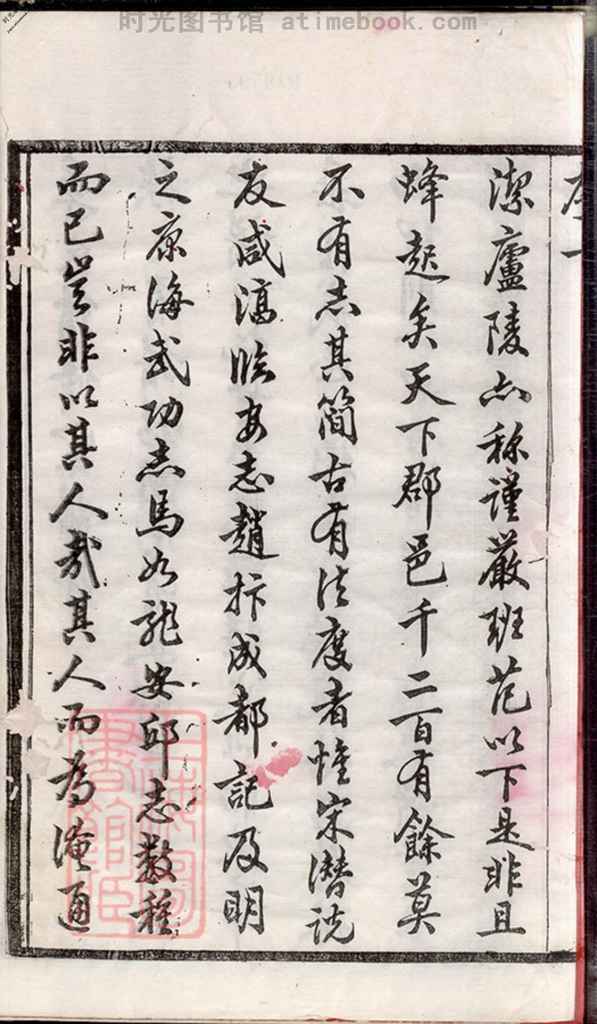 时光图书馆 atimebook.com
序一
潔廬陵亦称謹嚴班范以下是非且
蜂起矣天下郡邑千二百有餘莫
不有志其簡古有法度者惟宋潜说
友咸淳臨安志趙抃成都記及明
之康海武功志馬如龍安邱志数種
而已豈非以其人哉其人而為淹通